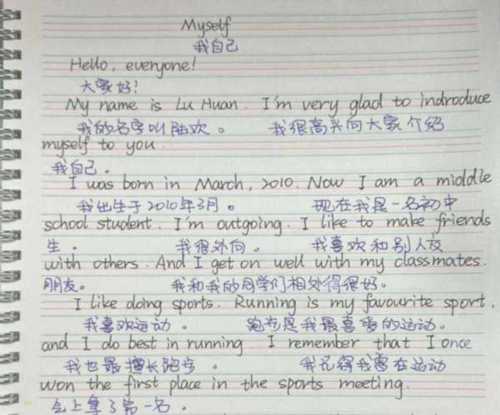 Myself
我自己
Hello, everyone!
大家好!
My name is Lu Huan. I'm very glad to indroduce
我的名字叫陆欢。 我很高兴向大家介绍
myself to you.
我自己。
I was born in March, 2010. Now I am a middle
我出生于2010年3月。 现在我是一名初中
school student. I'm outgoing. I like to make friends
生。 我很外向。 我喜欢和别人交
with others. And I get on well with my classmates.
朋友。 我和我的同学们相处得很好。
I like doing sports. Running is my favourite sport,
我喜欢运动。 跑步是我最喜爱的运动。
and I do best in running. I remember that I once
我也最擅长跑步。 我记得我曾在运动
won the first place in the sports meeting.
会上拿了第一名。